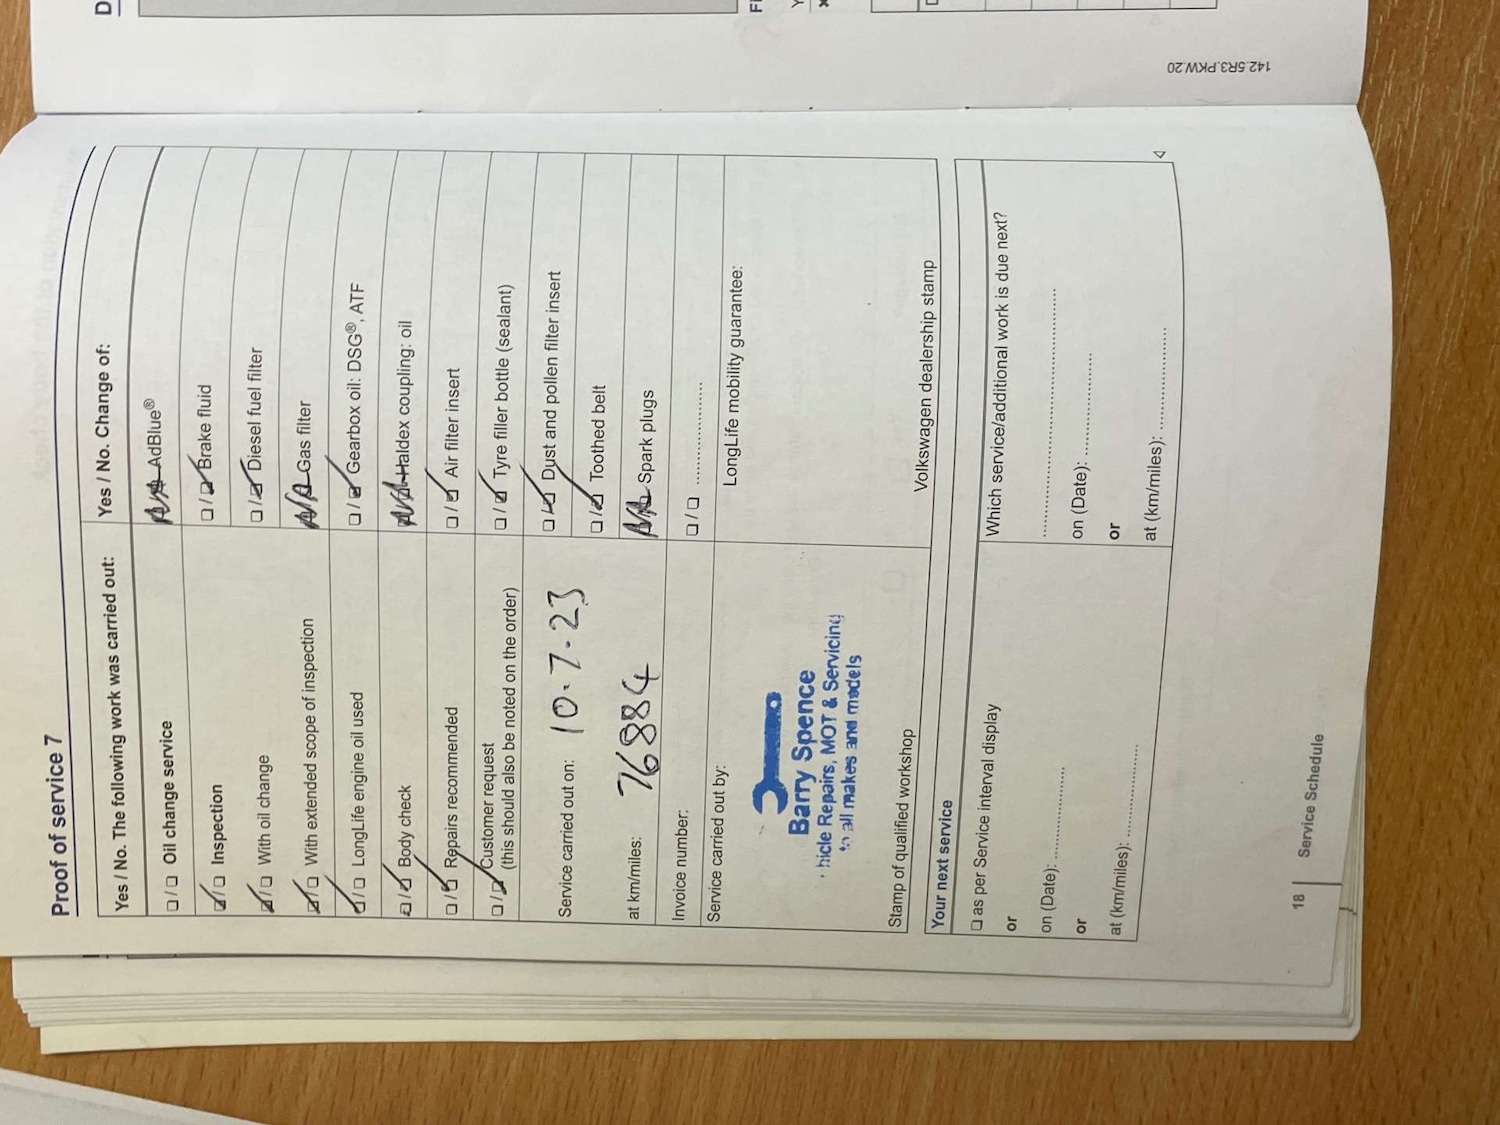 Proof of service 7
Yes / No. The following work was carried out:
☐ / ☐ Oil change service
☑ / ☐ Inspection
☑ / ☐ With oil change
☑ / ☐ With extended scope of inspection
☑ / ☐ LongLife engine oil used
☐ / ☑ Body check
☐ / ☑ Repairs recommended
☐ / ☑ Customer request
(this should also be noted on the order)
Service carried out on: 10.7.23
at km/miles: 76884
Invoice number:
Service carried out by:
Barry Spence
hicle Repairs, MOT & Servicing
to all makes and models
Stamp of qualified workshop
Yes / No. Change of:
N/A AdBlue®
☐ / ☑ Brake fluid
☐ / ☑ Diesel fuel filter
N/A Gas filter
☐ / ☑ Gearbox oil: DSG®, ATF
N/A Haldex coupling: oil
☐ / ☑ Air filter insert
☐ / ☑ Tyre filler bottle (sealant)
☐ / ☑ Dust and pollen filter insert
☐ / ☑ Toothed belt
N/A Spark plugs
☐ / ☐ ....................
LongLife mobility guarantee:
Volkswagen dealership stamp
Your next service
☐ as per Service interval display
or
on (Date): ....................
or
at (km/miles): ....................
Which service/additional work is due next?
..................................................
on (Date): ....................
or
at (km/miles): ....................
18
Service Schedule
142.5R3.PKW.20